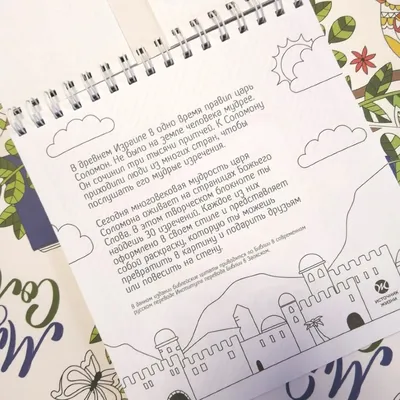 В древнем Израиле в одно время правил царь
Соломон. Не было на земле человека мудрее.
Он сочинил три тысячи притчей. К Соломону
приходили люди из многих стран, чтобы
послушать его мудрые изречения.
Сегодня многовековая мудрость царя
Соломона оживает на страницах Божьего
Слова. В этом творческом блокноте ты
найдешь 30 изречений. Каждое из них
оформлено в своем стиле и представляет
собой раскраску, которую ты можешь
превратить в картину и подарить друзьям
или повесить на стену.
В данном издании библейские цитаты приводятся по Библии в современном
русском переводе Института перевода Библии в Заокском.
ИСТОЧНИК
ЖИЗНИ